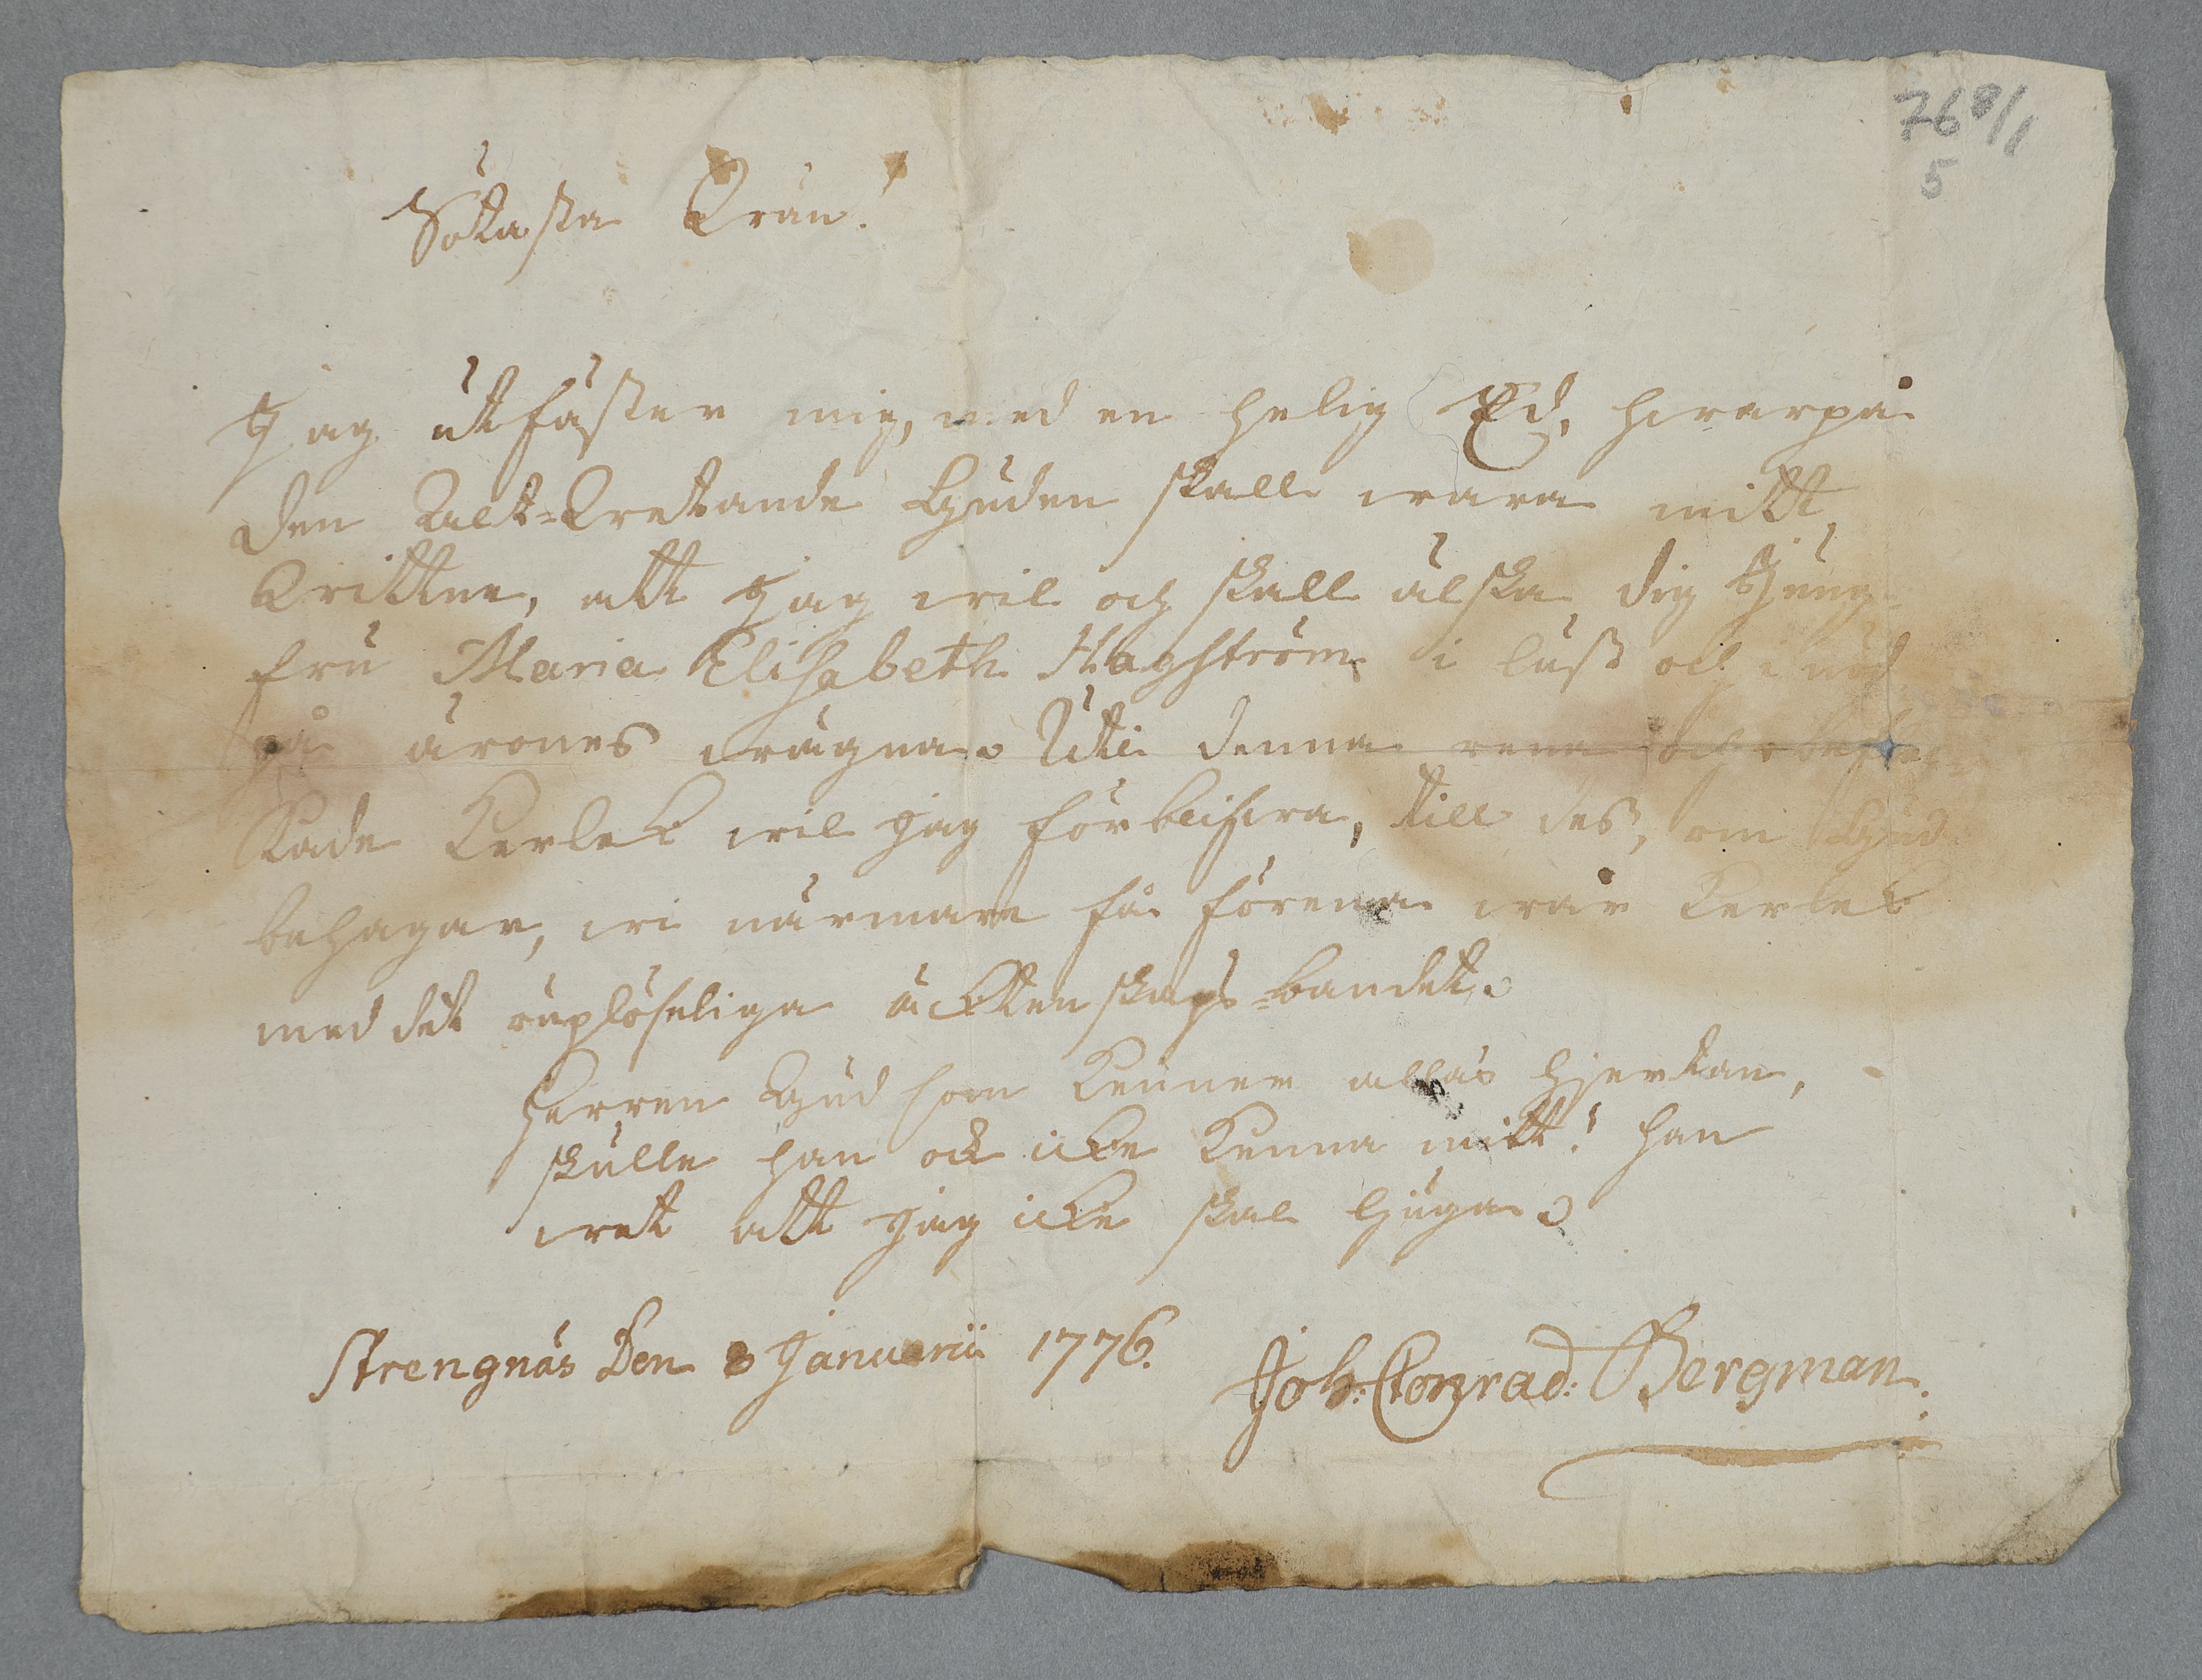 768/1
5
Sötasta Wän!
Jag utfäster mig, med en helig Ed, hvarpå
den Alt-Wetande Guden skall wara mitt
Wittne, att Jag wil och skall älska dig Jung-
fru Maria Elisabeth Hagström i lust och i nöd
på ärones wägna. Uti denna rena och obeflec-
kade Kerlek wil jag förblifwa, till des, om Gud
behagar, wi närmare få förena wår Kerlek
med det ouplösliga äcktenskaps-bandet.
Herren Gud som Känner allas hjertan,
skulle han ock icke Kenna mitt! han
wet att jag icke skal ljuga.
Strengnäs Den 8 Januarii 1776.
Joh: Conrad: Bergman.